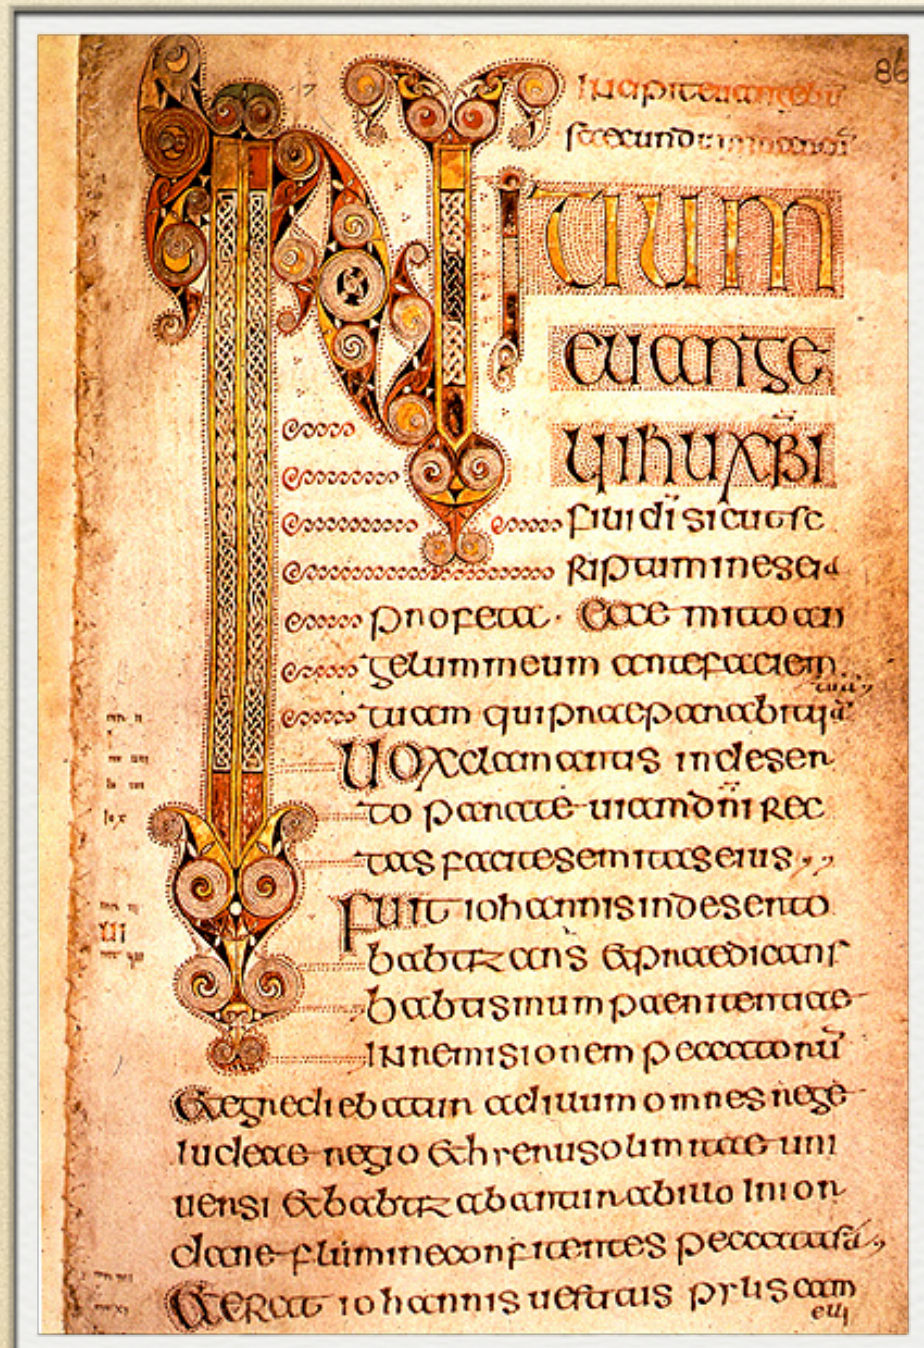 86
Incipit euangeliū
secundum marcū
INITIUM
euange
lii ihu xp̄i
fili dī sicut sc
riptum in eseia
profeta · Ecce mitto an
gelum meum ante faciem
tuā
tuam qui praeparabit uiā
Uox clamantis in deser
to parate uiam dn̄i rec
tas facite semitas eius
Fuit iohannis in deserto
babtizans & praedicans
babtismum paenitentiae
in remisionem peccatorū
& egrediebatur ad illum omnes rege
iudeae regio & hyerusolimitae uni
uersi & babtizabantur ab illo in ior
dane flumine confitentes peccata sua
& erat iohannis uestitus pylis cam
eli